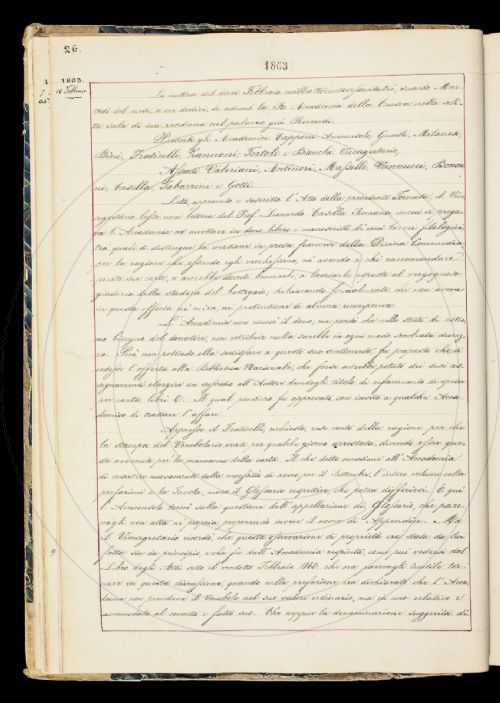 26.
1863
1863.
10 Febbraio
La mattina del dieci Febbraio milleottocentosessantatré, essendo Mar-
tedì del mese a ore dodici, si adunò la R. Accademia della Crusca nella soli-
ta sala di sua residenza nel palazzo già Riccardi.
Presenti gli Accademici Capponi Arciconsolo, Guasti, Milanesi,
Bini, Fraticelli, Zannoni, Tortoli e Bianchi Vicesegretario,
Assenti Valeriani, Antinori, Maffei, Vannucci, Bonai-
ni, Casella, Tabarrini e Gotti.
Letto approvato e soscritto l'Atto della precedente Tornata, il Vice-
segretario lesse una lettera del Prof. Leonardo Casella Romano, in cui si prega-
va l'Accademia ad accettare in dono libri e manoscritti di suoi lavori filologici,
tra quali si distingue la versione in prosa francese della Divina Commedia,
per la ragione che essendo egli vecchissimo, né avendo a chi raccomandare
queste sue carte, o avrebbe dovuto bruciarle, o lasciarle esposte al vergognoso
giudizio della stadera del bottegaio, dichiarando formalmente che non aveva
in questa offerta né mira, né pretensione di alcuna ricompensa.
L'Accademia non ricusò il dono, ma perché che nello stato di estre-
mo bisogno del donatore, non retribuir nulla sarebbe in ogni modo sembrata durez-
za. Però non potendo ella sodisfare a questo suo sentimento, fu proposto che si
cedesse l'offerta alla Biblioteca Nazionale, che forse avrebbe potuto dei suoi as-
segnamenti elargire un sussidio all'Autore dandogli titolo di rifacimento di spese
in carta, libri &. Il qual pensiero fu approvato, con invito a qualche Acca-
demico di trattare l'affare.
Appresso il Fraticelli, richiesto, rese conto delle ragioni per che
la stampa del Vocabolario erasi per qualche giorno arrestata, dicendo esser que-
sto avvenuto per la mancanza della carta. Il che dette occasione all'Accademia
di mostrare nuovamente della necessità di avere per il Settembre, l'intero volume colla
prefazione e la Tavola, meno il Glossario respettivo, che poteva differirsi. E qui
l'Arciconsolo tornò sulla questione dell'appellazione di Glossario, che pare-
vagli non atta né propria, proponendo invece il nome di Appendice. Ma
il Vicesegretario ricordò, che questa osservazione di proprietà era stata da lui
fatta sin da principio, e che fu dall'Accademia respinta, come può vedersi dal
Libro degli Atti sotto il ventotto Febbraio 1860. che ora parevagli inutile tor-
nare su questa discussione, quando nella prefazione era dichiarato che l'Acca-
demia non prendeva il Vocabolo nel suo valore ordinario, ma in uno relativo e
accomodato al concetto e fatto suo. Che neppur la denominazione suggerita di